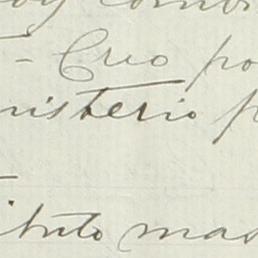 - Creo po
nisterio p
ibuto mas